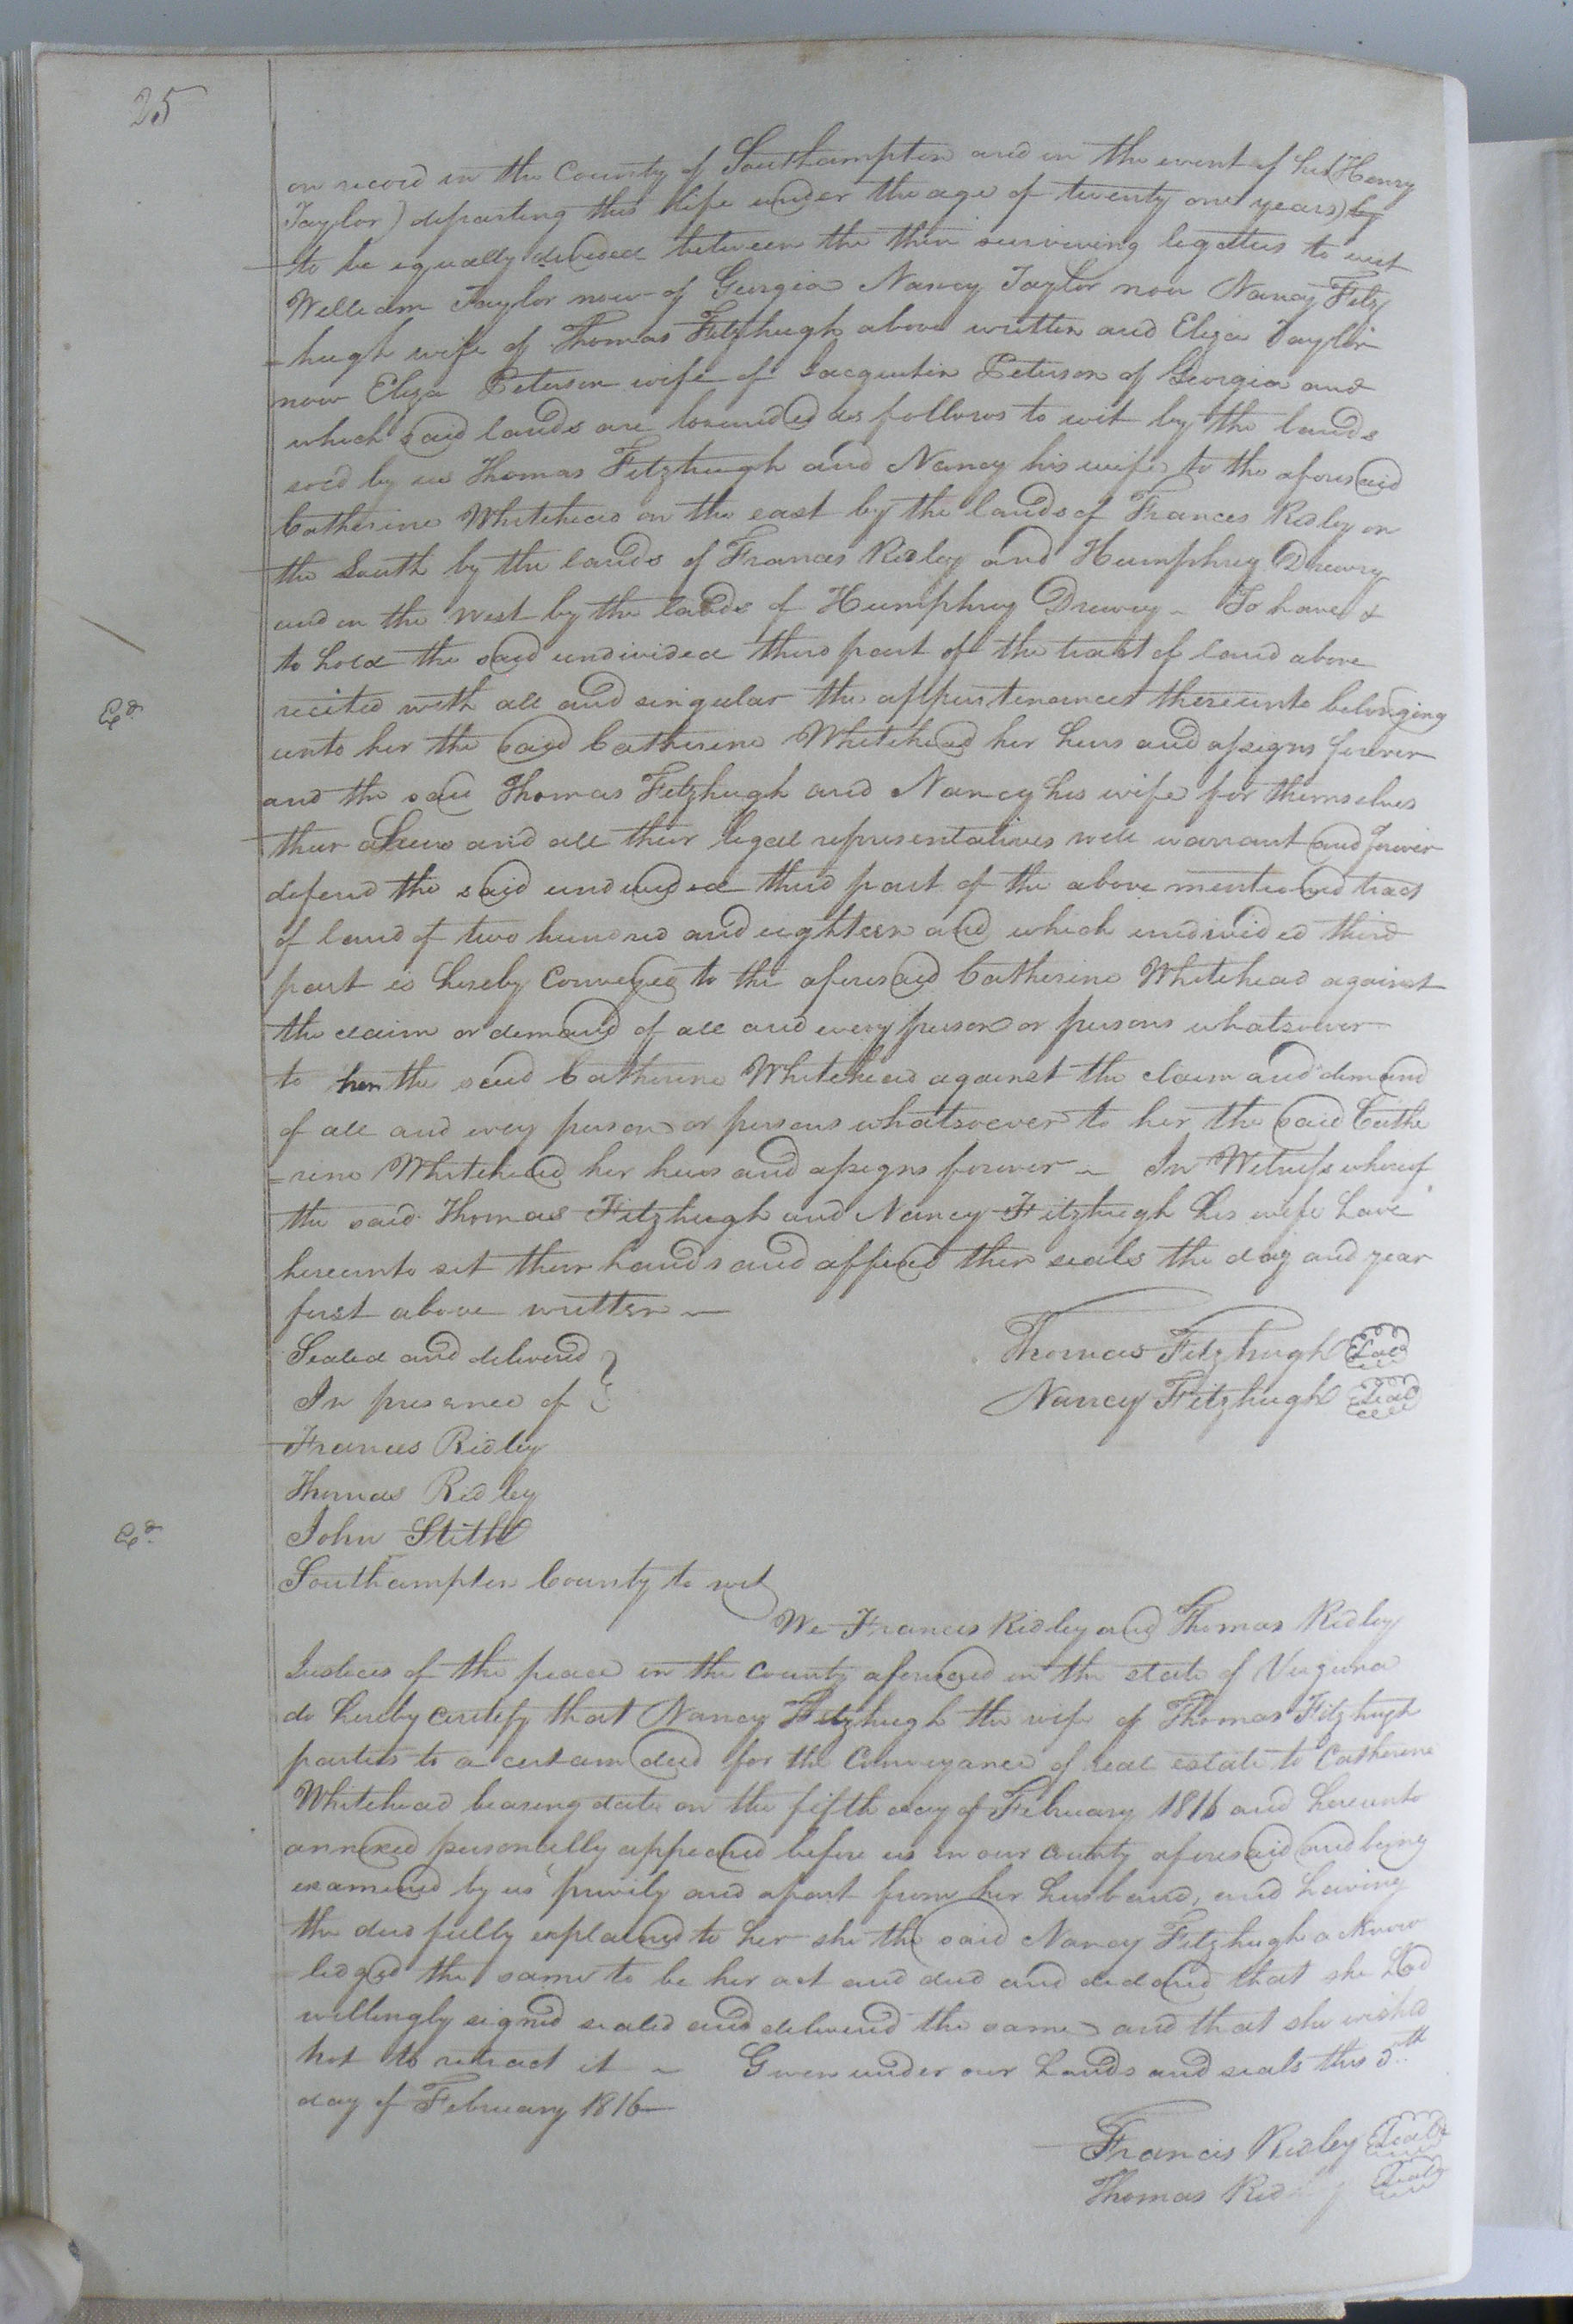 25
on record in the County of Southampton and in the event of his (Henry
Taylor) departing this life under the age of twenty one years) by
to be equally divided between the then surviving legatees to wit
William Taylor now of Georgia Nancy Taylor now Nancy Fitz
-hugh wife of Thomas Fitzhugh above written and Eliza Taylor
now Eliza Peterson wife of Peterson of Georgia and
which said lands are bounded as follows to wit by the lands
sold by us Thomas Fitzhugh and Nancy his wife to the aforesaid
Catherine Whitehead on the east by the lands of Frances Ridley on
the South by the lands of Frances Ridley and Humphrey Drewry
and on the West by the lands of Humphrey Drewry - To have &
to hold the said undivided third part of the tract of land above
recited with all and singular the appurtenances thereunto belonging
unto her the said Catherine Whitehead her heirs and assigns forever
and the said Thomas Fitzhugh and Nancy his wife for themselves
their heirs and all their legal representatives will warrant and forever
defend the said undivided third part of the above mentioned tract
of land of two hundred and eighteen and which undivided third
part is hereby Conveyed to the aforesaid Catherine Whitehead against
the claim or demand of all and every person or persons whatsoever
to her the said Catherine Whitehead against the claim and demand
of all and every person or persons whatsoever to her the said Cathe
=rine Whitehead her heirs and assigns forever - In Witness whereof
the said Thomas Fitzhugh and Nancy Fitzhugh his wife have
hereunto set their hands and affixed their seals the day and year
first above written -
Sealed and delivered }
Thomas Fitzhugh Seal
In presence of
Nancy Fitzhugh Seal
Francis Ridley
Thomas Ridley
John Stith
Southampton County to wit
We Francis Ridley and Thomas Ridley
Justices of the peace in the County aforesaid in the state of Virginia
do hereby certify that Nancy Fitzhugh the wife of Thomas Fitzhugh
parties to a certain deed for the Conveyance of real estate to Catherine
Whitehead bearing date on the fifth day of February 1816 and hereunto
annexed personally appeared before us in our County aforesaid and being
examined by us privily and apart from her husband, and having
the deed fully explained to her she the said Nancy Fitzhugh acknow
ledged the same to be her act and deed and declared that she had
willingly signed sealed and delivered the same and that she wished
not to retract it - Given under our hands and seals this 5th
day of February 1816
Francis Ridley Seal
Thomas Ridley Seal